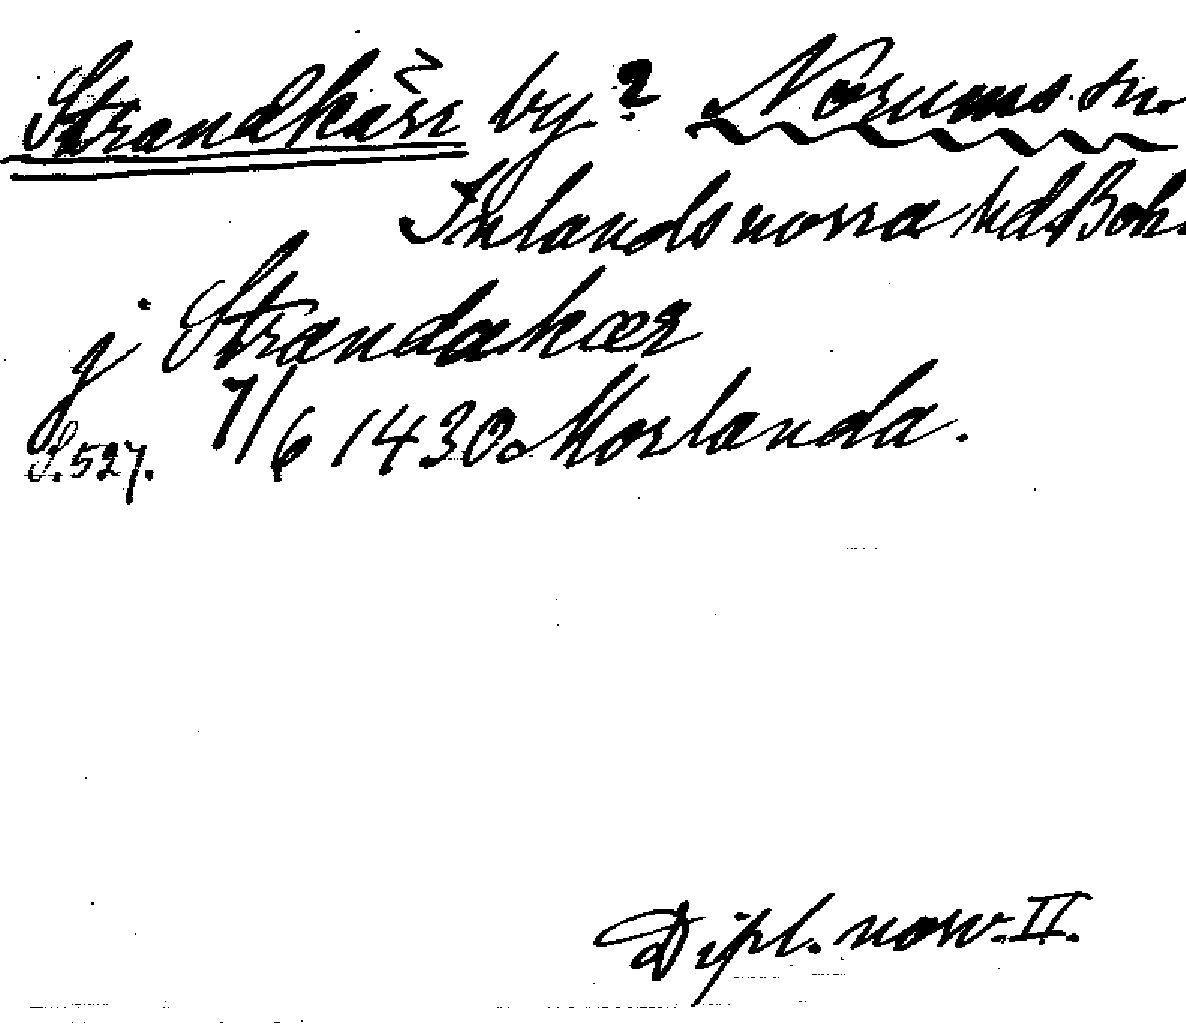 Strandkärr by? Norums sn.
Inlands norra hd, Boh.
j Strandakær
S. 527. 7/6 1430 Morlanda.
Dipl. norv. II.